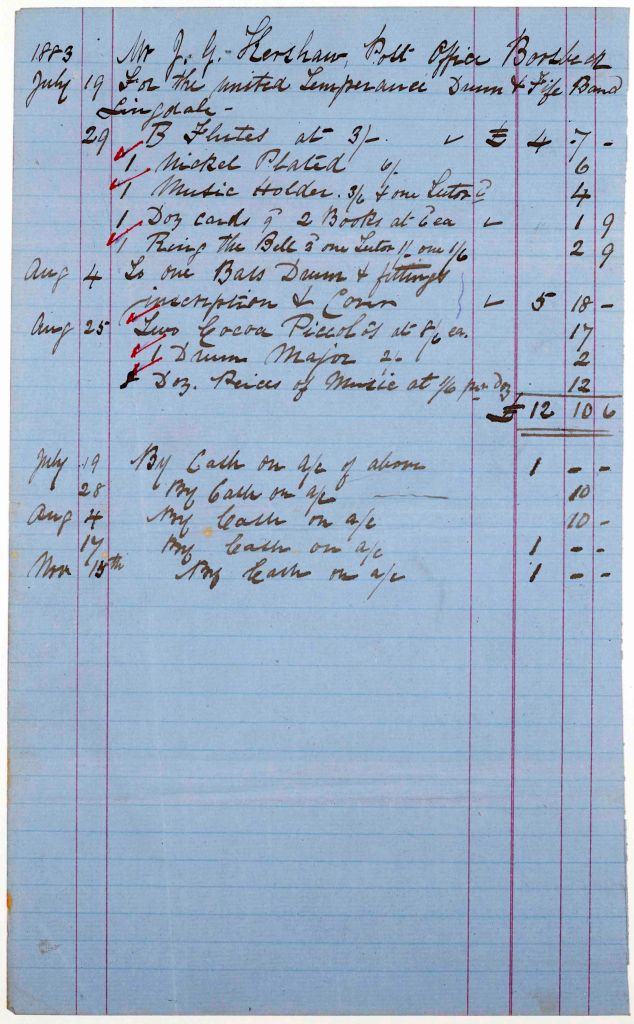 1883 Mr J. G. Kershaw, Post Office Boosbeck
July 19 For the united Temperance Drum & Fife Band
Lingdale -
29 B Flutes at 3/- £ 4 7 -
1 Nickel Plated 6/ 6
1 Music Holder. 3/6 & one Tutor 4
1 Doz cards & 2 Books at ea 1 9
1 Ring the Bell & one Tutor 1/ one 1/6 2 9
Aug 4 To one Bass Drum & fittings
inscription & Cover 5 18 -
Aug 25 Two Cocoa Piccolos at 8/6 ea. 17
1 Drum Major 2
Doz. Peices of Music at 1/6 per Doz 12
£ 12 10 6
July 19 By Cash on a/c of above 1 - -
28 By Cash on a/c 10
Aug 4 By Cash on a/c 10 -
17 By Cash on a/c 1 - -
Nov 15th By Cash on a/c 1 - -